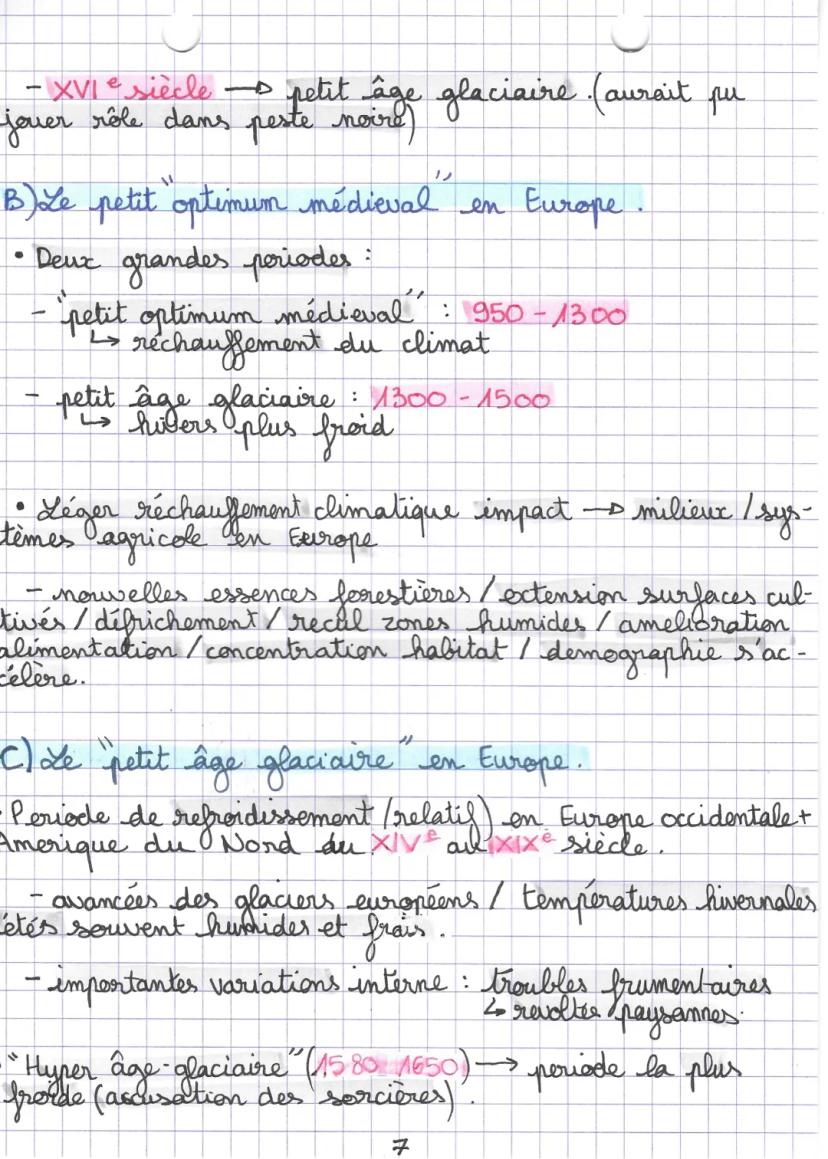 - XVIe siècle → petit âge glaciaire. (aurait pu
jouer rôle dans peste noire)
B) Le petit "optimum médieval" en Europe.
• Deux grandes periodes :
- "petit optimum médieval" : 950 - 1300
↳ réchauffement du climat
- petit âge glaciaire : 1300 - 1500
↳ hivers plus froid
• Léger réchauffement climatique impact → milieux / sys-
tèmes agricole en Europe
- nouvelles essences forestières / extension surfaces cul-
tivés / défrichement / recul zones humides / amelioration
alimentation / concentration habitat / demographie s'ac-
célère.
C) Le "petit âge glaciaire" en Europe.
Periode de refroidissement (relatif) en Europe occidentale +
Amerique du Nord du XIVe au XIXe siècle.
- avancées des glaciers européens / températures hivernales
étés souvent humides et frais.
- importantes variations interne : troubles frumentaires
↳ revoltes paysannes.
• "Hyper âge-glaciaire" (1580 - 1650) → periode la plus
froide (accusation des sorcières).
7